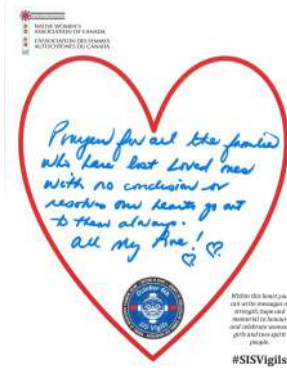 NATIVE WOMEN'S
ASSOCIATION OF CANADA
L'ASSOCIATION DES FEMMES
AUTOCHTONES DU CANADA
Prayer for all the families
who have lost loved ones
with no conclusion or
resolve our hearts go out
to them always.
all my love!
October 4th
SIS Vigils
Within this heart you
can write messages of
strength, hope and
memorial to honour
and celebrate women,
girls and two-spirit
people.
#SISVigils